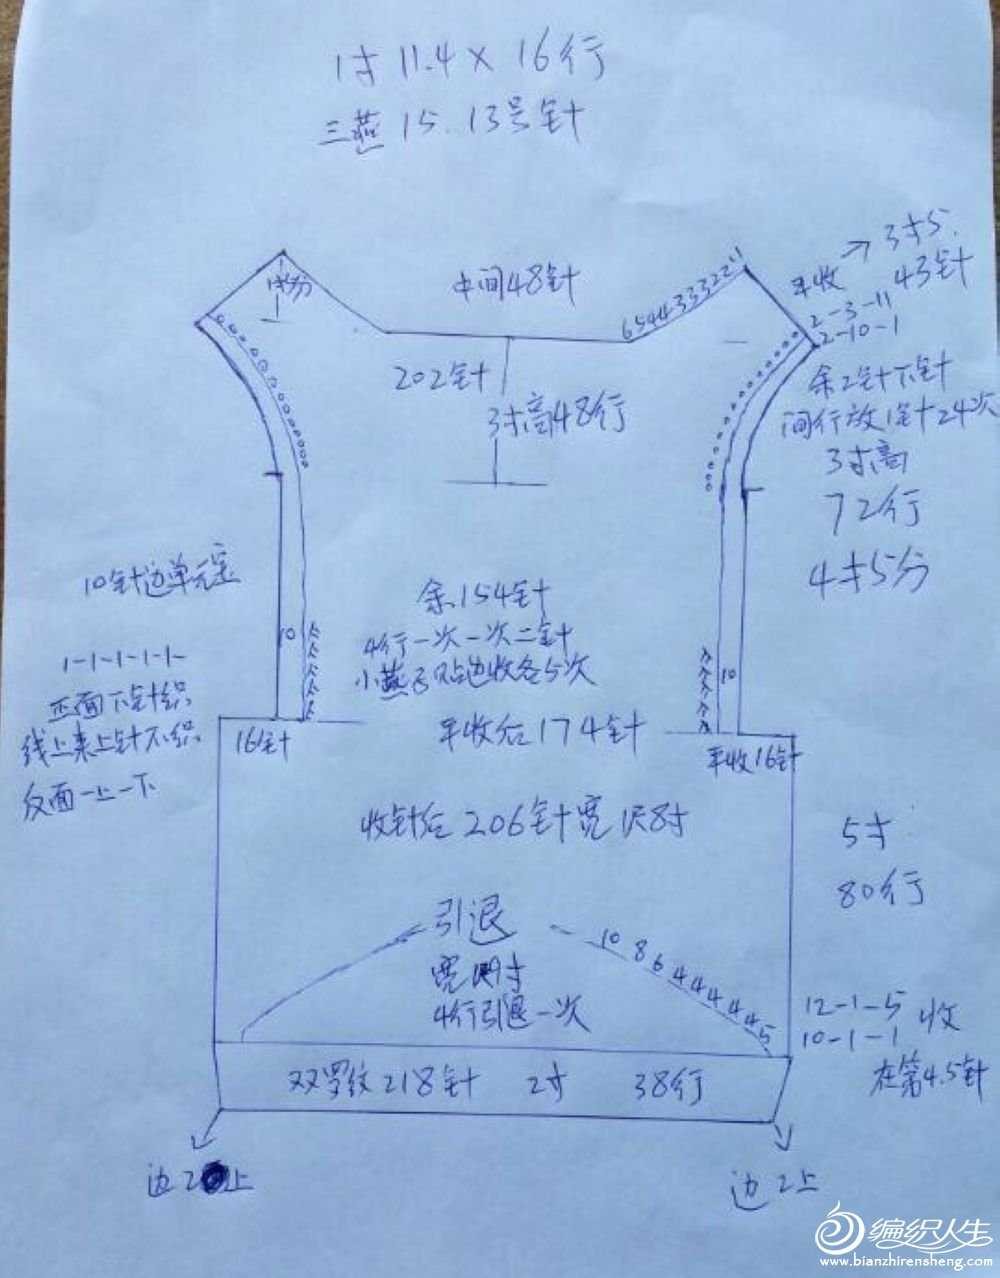 1寸 11.4 × 16行
三燕 15. 13号针
中间48针
6544333221
平收 → 3寸5.
43针
2-3-11
2-10-1
202针
3寸高48行
余2针下针
间行放1针24次
3寸高
72行
4寸5分
10针边单元宝
余154针
4行一次一次二针
小燕子贴边收各5次
10
10
1-1-1-1-1-
正面下针织
线上来上针不织
反面一上一下
16针
平收后174针
平收16针
收针后206针宽1尺8寸
5寸
80行
引退
10 8 6 4 4 4 4 4 5
4行引退一次
12-1-5 收
10-1-1
在第4.5针
双罗纹218针 2寸 38行
边2上
边2上
编织人生
www.bianzhirensheng.com